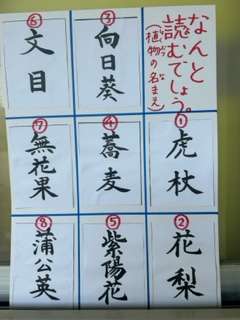 なんと
読むでしょう。
(植物の名まえ)
①
虎杖
②
花梨
③
向日葵
④
蕎麦
⑤
紫陽花
⑥
文目
⑦
無花果
⑧
蒲公英